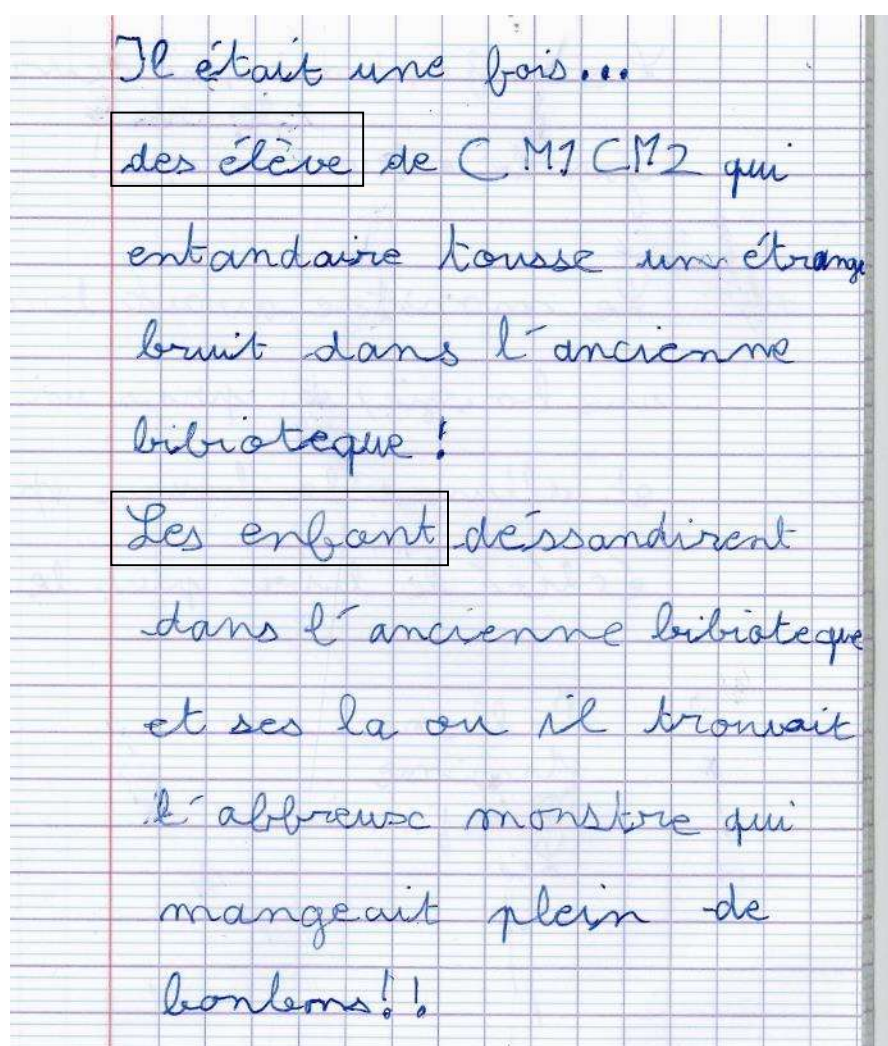 Il était une fois...
des élève de CM1 CM2 qui
entandaire tousse un étrange
bruit dans l'ancienne
bibioteque !
Les enfant déssandirent
dans l'ancienne bibioteque
et ses la ou il trouvait
l'affreusc monstre qui
mangeait plein de
bonbons!!